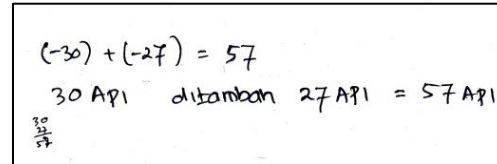 (-30) + (-27) = 57
30 API ditamban 27 API = 57 API
30
27
57